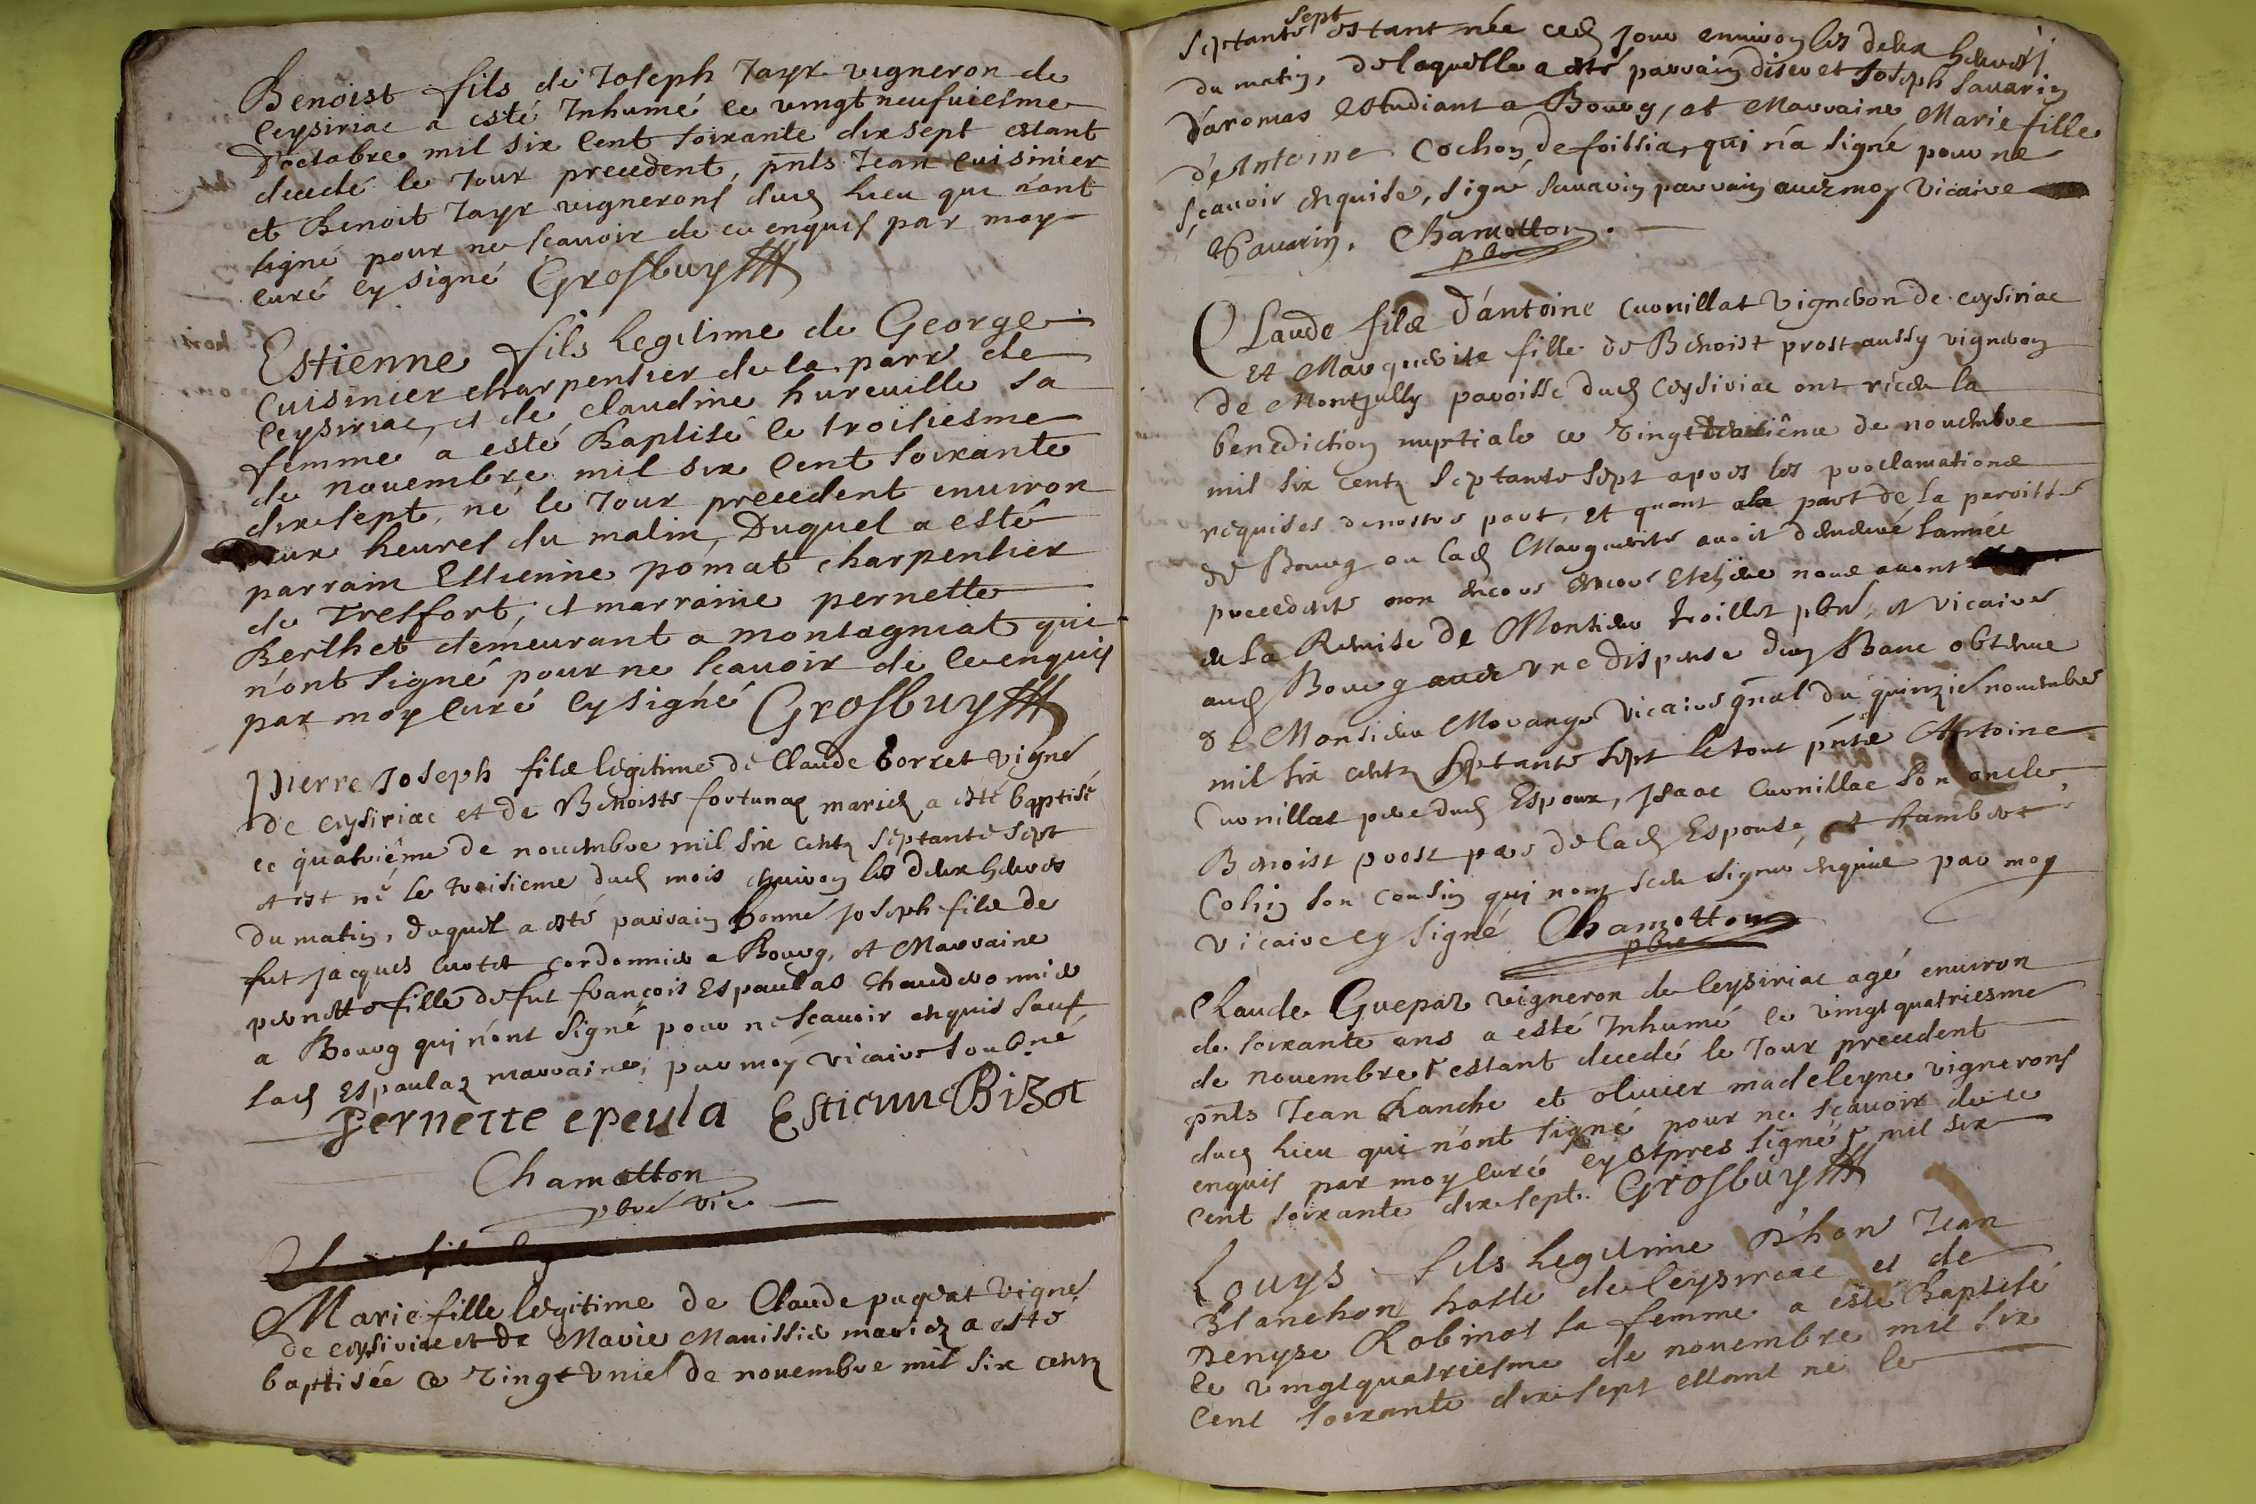 Benoist fils de Joseph Jayr vigneron de
Ceysiriac a esté Inhumé le vingt neufuiesme
D'octobre mil six cent soixante dix sept estant
decedé le Jour precedent, pnts Jean Cuisinier
et Benoit Jayr vignerons dud lieu qui n'ont
signé pour ne scauoir de ce enquis par moy
curé sy signé Grosbuy
Estienne fils legitime de George
Cuisinier charpentier de la parr de
Ceysiriac, et de Claudine hureuille sa
femme a esté Baptisé le troisiesme
de nouembre mil six cent soixante
dix sept, né le Jour precedent enuiron
deux heures du matin, Duquel a esté
parrain Estienne pomat charpentier
de Tresfort, et marraine pernette
Berthet demeurant a montagniat qui
n'ont signé pour ne scauoir de ce enquis
par moy curé sy signé Grosbuy
Pierre Joseph filz legitime de Claude Borret vigne
de ceysiriac et de Benoiste fortuna mariez a esté baptisé
ce quatriéme de nouembre mil six centz septante sept
et est né le troisieme dud mois enuiron les deux heures
du matin, duquel a esté parrain honne Joseph filz de
fut Jacques cordonnier a Bourg, et Marraine
pernette fille de fut françois Espaulaz Chauderonnier
a Bourg qui n'ont signé pour ne scauoir enquis sauf
lad Espaulaz marraine, par moy vicaire soubné
Pernette epeula Estienne Bizot
Chamotton
pbre vic
Marie fille legitime de Claude paquat vigne
de ceysiriac et de Marie Manissier mariez a esté
baptisée ce vingt vnie de nouembre mil six centz
septante sept estant née ced jour enuiron les deux heures
du matin, de laquelle a esté parrain discret Joseph Sauarin
d'aromas estudiant a Bourg, et Marraine Marie fille
d'Antoine Cochon de foissia, qui n'a signé pour ne
scauoir enquise, signé sauarin parrain auec moy vicaire
Sauarin. Chamotton.
pbre
Claude filz d'antoine Cuonillat vigneron de ceysiriac
et Marguerite fille de Benoist prost aussy vigneron
de Montjully paroisse dud Ceysiriac ont receu la
benediction nuptiale ce vingt de nouembre
mil six centz septante sept apres les proclamationz
requises de nostre part, et quant a la part de la paroisse
de Bourg ou lad Marguerite auoit demeuré l'année
precedente non encore nous auons
eu la Remise de Monsieur troillet pbre, et vicaire
aud Bourg auec vne dispense d'un Banc obtenue
de Monsieur Morange vicaire gnal du quinzie nouembre
mil six centz septante sept le tout pnts Antoine
Cuonillat pere dud Espoux, Isaac Cuonillac son oncle
Benoist prost pere de lad Espouse, et Humbert
Colin son cousin qui n'ont sceu signer enquis par moy
vicaire sy signé Chamotton
pbre
Claude Guepaz vigneron de Ceysiriac agé enuiron
de soixante ans a esté Inhumé le vingt quatriesme
de nouembre estant decedé le Jour precedent
pnts Jean Ranche et oliuier madeleyne vignerons
dud lieu qui n'ont signé pour ne scauoir de ce
enquis par moy curé cy apres signé mil six
cent soixante dix sept. Grosbuy
Louys fils legitime d'hon Jean
Blanchon hoste de Ceysiriac et de
Denyse Robinot sa femme a esté Baptisé
le vingt quatriesme de nouembre mil six
cent soixante dix sept estant né le